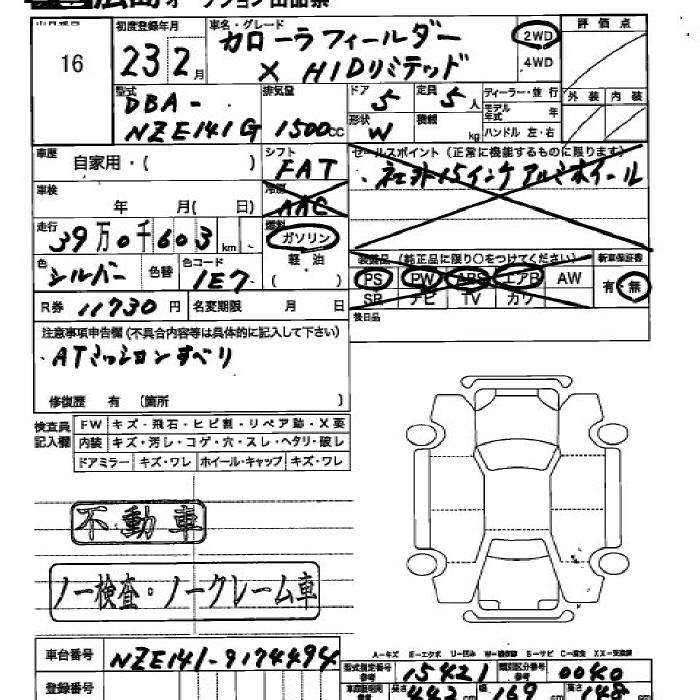 広島オークション出品票
16
初度登録年月
23 2月
車名・グレード
カローラフィールダー
X HIDリミテッド
2WD
4WD
評価点
外装 内装
型式
DBA-
NZE141G
排気量
1500cc
ドア 5
定員 5人
形状 W
積載 kg
ディーラー・並行
モデル年式 年
ハンドル 左・右
車歴
自家用・( )
シフト
FAT
セールスポイント(正常に機能するものに限ります)
・社外15インチアルミホイール
車検
年 月(日)
冷房
AAC
走行
39万0千603km
燃料
ガソリン
軽油
( )
色
シルバー
色替
色コード
1E7
装備品(純正品に限り○をつけてください)
新車保証書
PS PW ABS エアB AW
有・無
SR ナビ TV カワ
R券 11730円
名変期限 月 日
後日品
注意事項申告欄(不具合内容等は具体的に記入して下さい)
・ATミッションすべり
修復歴 有(箇所 )
検査員記入欄
FW キズ・飛石・ヒビ割・リペア跡・X要
内装 キズ・汚レ・コゲ・穴・スレ・ヘタリ・破レ
ドアミラー キズ・ワレ ホイール・キャップ キズ・ワレ
不動車
ノー検査・ノークレーム車
車台番号 NZE141-9174494
登録番号
型式指定番号 15421
類別区分番号 0040
長さ 442cm 幅 169cm 高さ 148